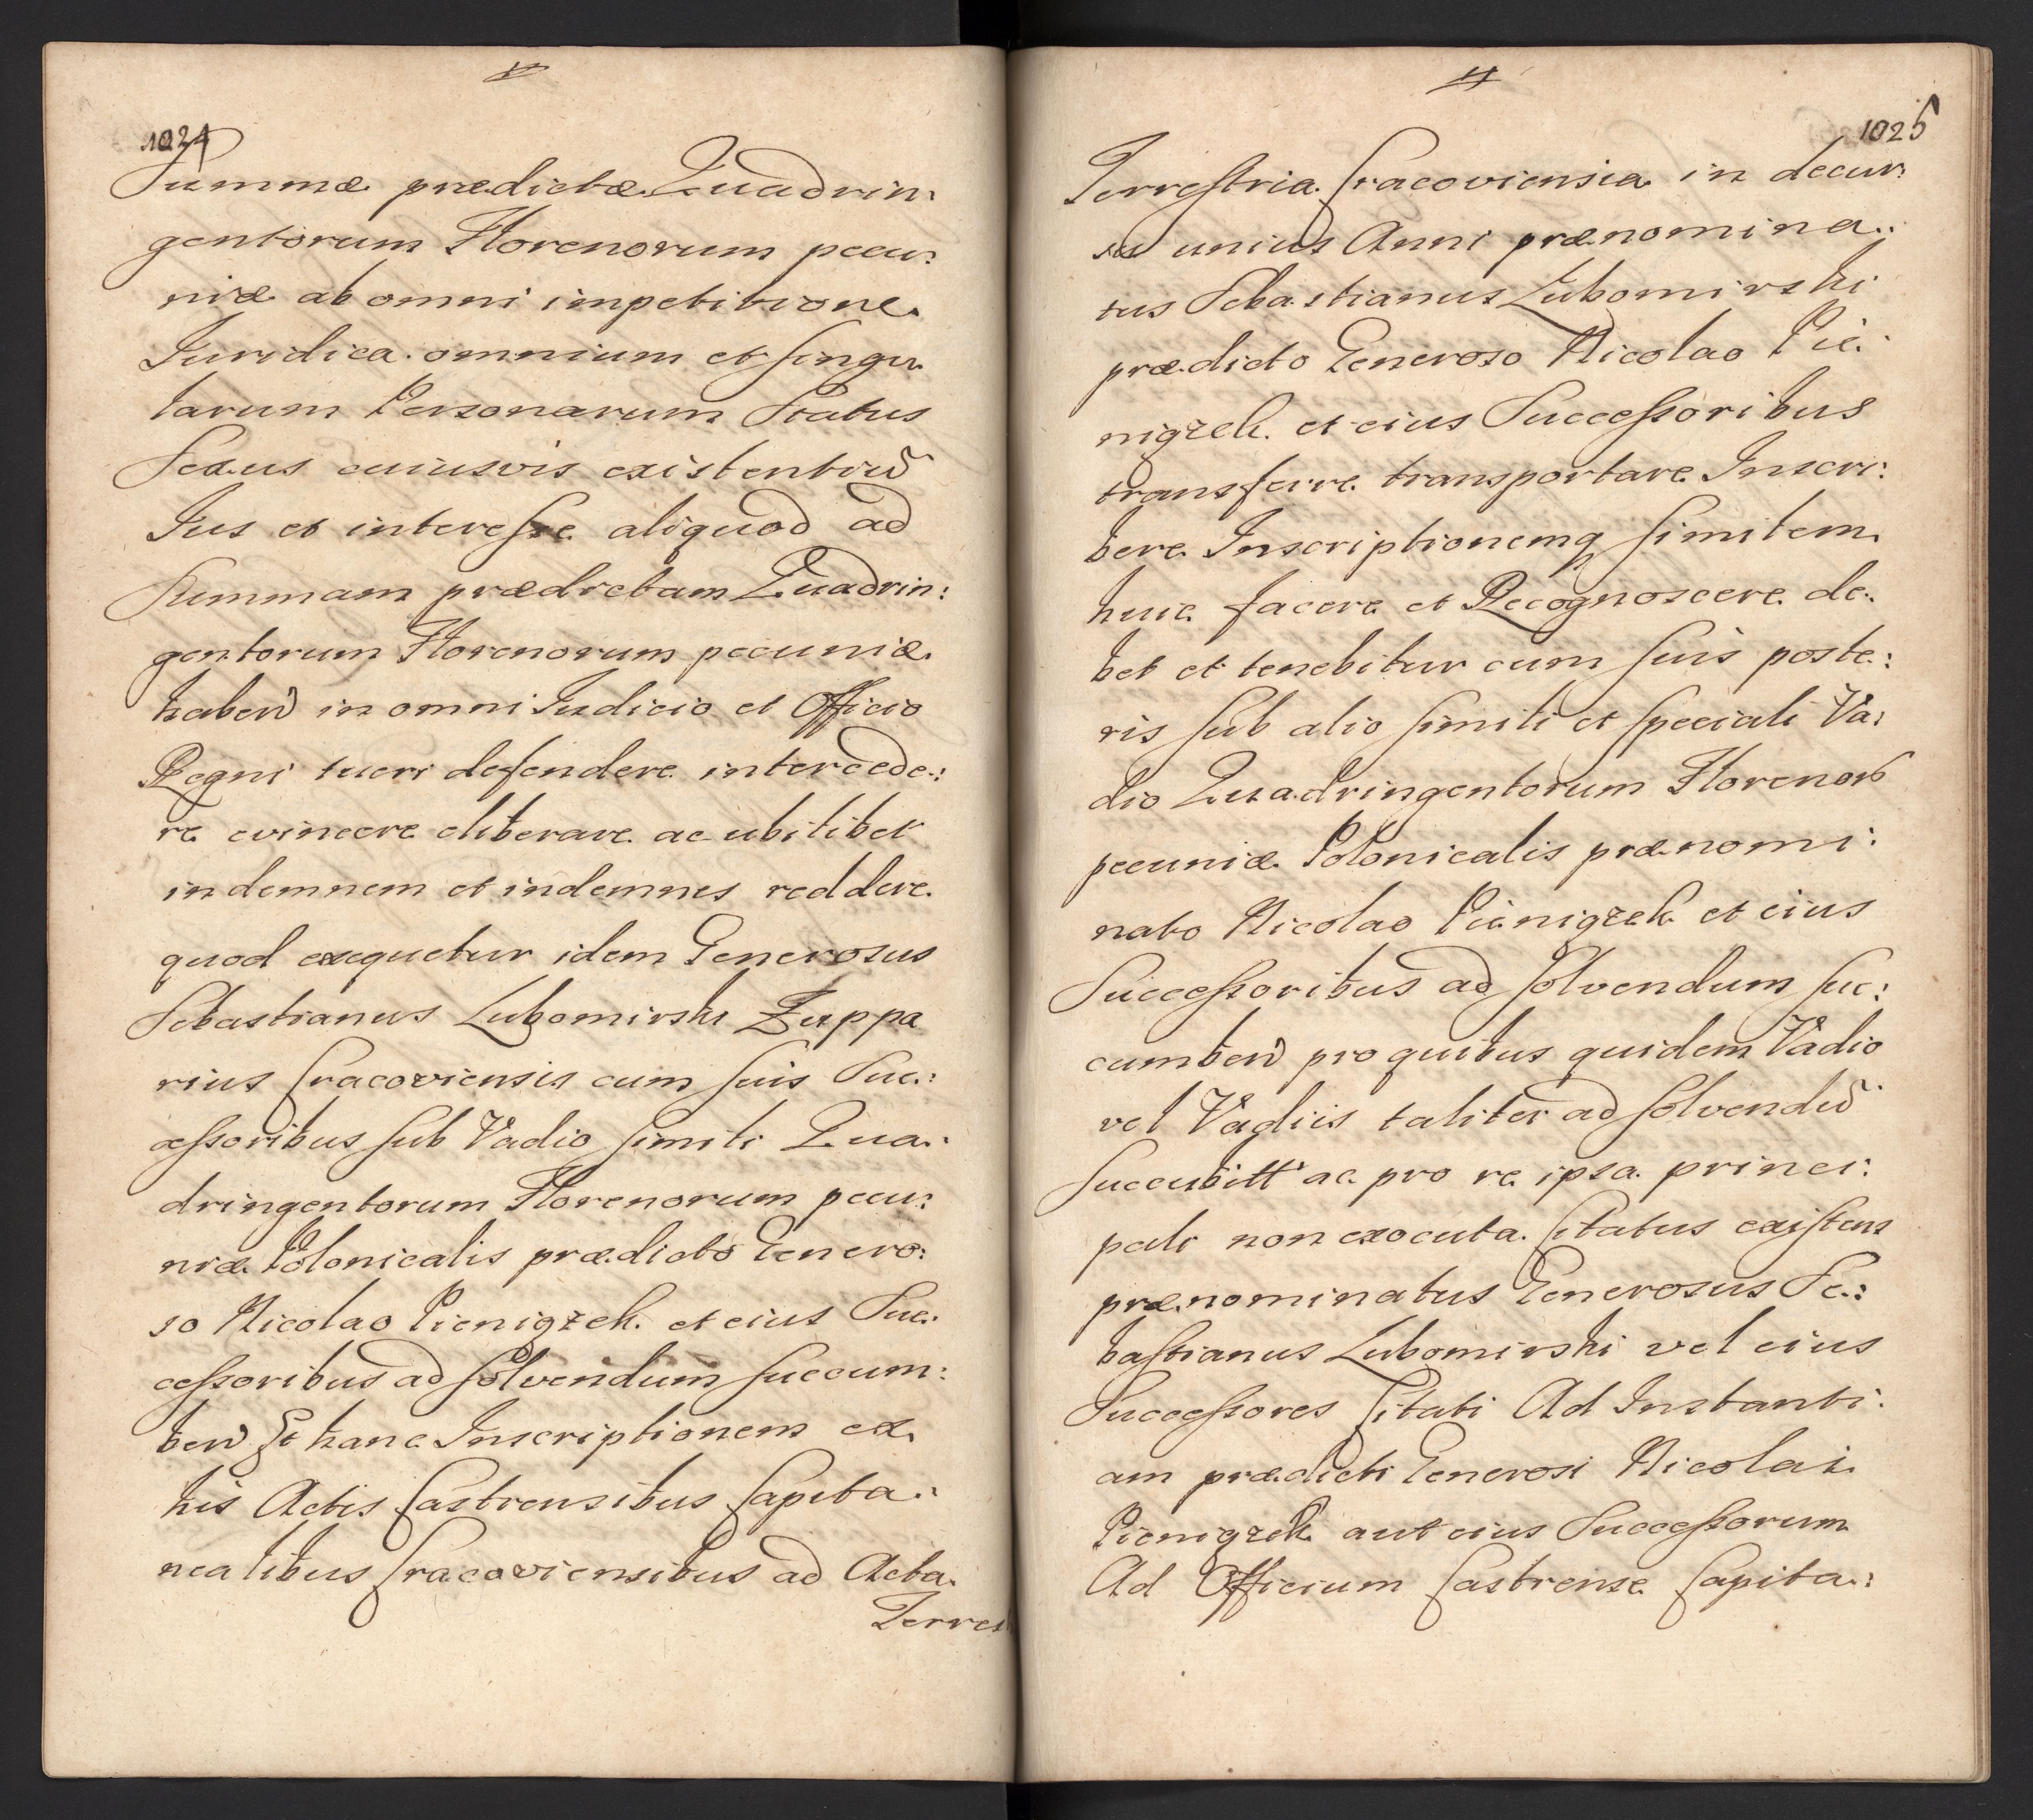 1024
Summæ prædictæ Quadrin:
gentorum Florenorum pecu:
niæ ab omni impetitione
Iuridica omnium et singu
larum Personarum Status
Sexus cuiusvis existentiũ
Ius et interesse aliquod ad
Summam prædictam Quadrin:
gentorum Florenorum pecuniæ
habeñ in omni Iudicio et Officio
Regni tueri defendere intercede:
re evincere eliberare ac ubilibet
indemnem et indemnes reddere
quod exequetur idem Generosus
Sebastianus Lubomirski Zuppa
rius Cracoviensis cum suis Suc:
cessoribus sub Vadio simili Qua:
dringentorum Florenorum pecu:
niæ Polonicalis prædicto Genero:
so Nicolao Pieniązek et eius Suc:
cessoribus ad solvendum succum:
beñ Et hanc Inscriptionem ex
his Actis Castrensibus Capita:
nealibus Cracoviensibus ad Acta
Terres
1025
Terrestria Cracoviensia in decur:
su unius Anni prænomina:
tus Sebastianus Lubomirski
prædicto Generoso Nicolao Pie:
niązek et eius Successoribus
transferre transportare Inscri:
bere Inscriptionemq similem
huic facere et Recognoscere de:
bet et tenebitur cum suis poste:
ris sub alio simili et speciali Va:
dio Quadringentorum Florenor
pecuniæ Polonicalis prænomi:
nato Nicolao Pieniązek et eius
Successoribus ad solvendum suc:
cumbeñ pro quibus quidem Vadio
vel Vadiis taliter ad solvendũ
succubitt ac pro re ipsa princi:
pali non executa Citatus existens
prænominatus Generosus Se:
bastianus Lubomirski vel eius
Successores Citati Ad Instanti:
am prædicti Generosi Nicolai
Pieniązek aut eius Successorum
Ad Officium Castrense Capita: